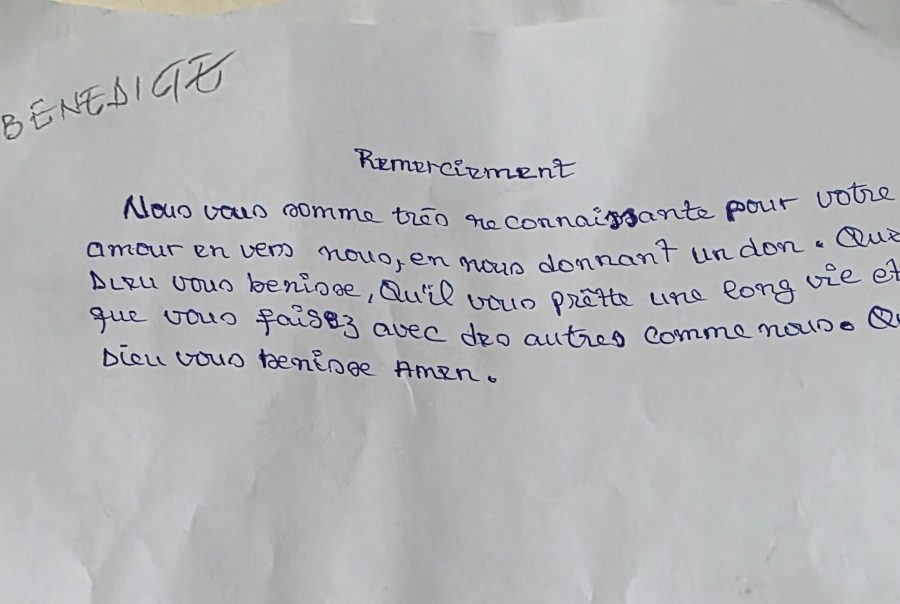 BÉNÉDICTE
Remerciement
Nous vous somme très reconnaissante pour votre
amour en vers nous, en nous donnant un don. Que
Dieu vous benisse, Qu'il vous prêtte une long vie et
que vous faisez avec des autres comme nous.
Dieu vous benisse Amen.